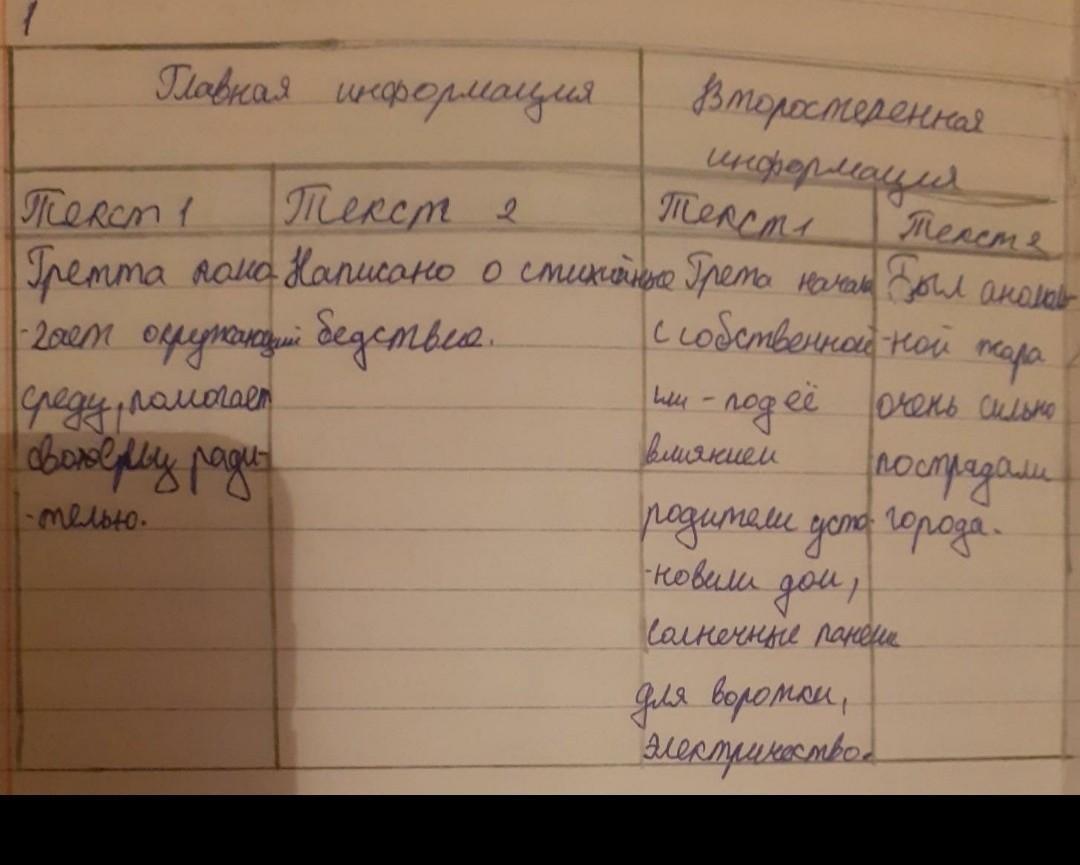 1
Главная информация
Второстеренная
информация
Текст 1
Текст 2
Текст 1
Текст 2
Гретта помо-
-гает окружающий
среду, помогает
роди-
-телью.
Написано о стихийные
бедствие.
Грета начала
с собственной
- под её
влиянием
родители уста-
-новили дом,
солнечные панели
для
электричество.
Был аномаль-
-ной жара
очень сильно
пострадали
города.